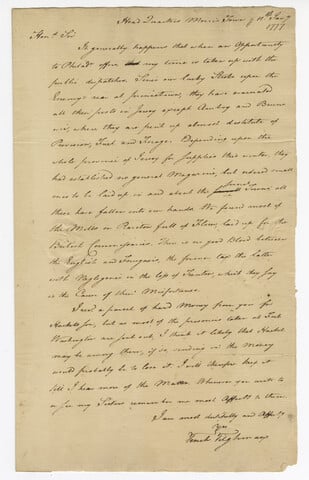 Head Quarters Morris Town 11th Jany
1777
Hond. Sir
It generally happens that when an Opportunity
to Philada. offers my time is taken up with the
public dispatches. Since our lucky Stroke upon the
Enemy's rear at princetown, they have evacuated
all their posts in Jersey except Amboy and Brunswic,
where they are pent up almost destitute of
Provision, Fuel and Forage. Depending upon the
whole province of Jersey for supplies this winter, they
had established no general Magazine, but ordered small
ones to be laid up in and about the several Towns all
these have fallen into our hands. We found most of
the Mills on Rariton full of Flour, laid up for the
British Commissaries. There is no good Blood between
the English and Foreigners, the former tax the latter
with Negligence in the loss of Trenton, which they say
is the Cause of their Misfortunes.
I recd a parcel of hard Money from you for
but as most of the prisoners taken at Fort
Washington are sent out, I think it likely that
may be among them, if so, sending in the Money
would probably be to lose it. I will therefore keep it
till I hear more of the Matter. Whenever you write to
or see my Sisters remember me most Affecty. to them.
I am most dutifully and Affecty
Yrs
Tench Tilghman